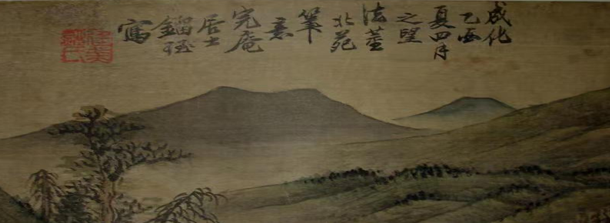 成化
乙酉
夏四月
之望
法董
北苑
筆
意
完庵
居士
鎦珏
寫